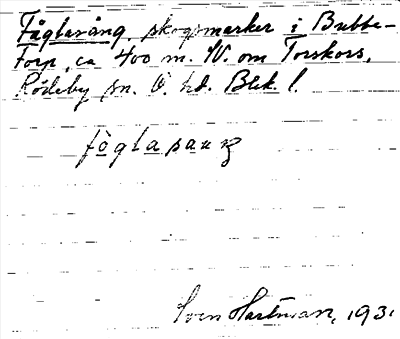 Fåglasång, skogsmarker i Bubbe-
torp, ca 400 m. N. om Torskors,
Rödeby sn. Ö. hd. Blek. l.
fòglasaŋ
Sven Hartman, 1931